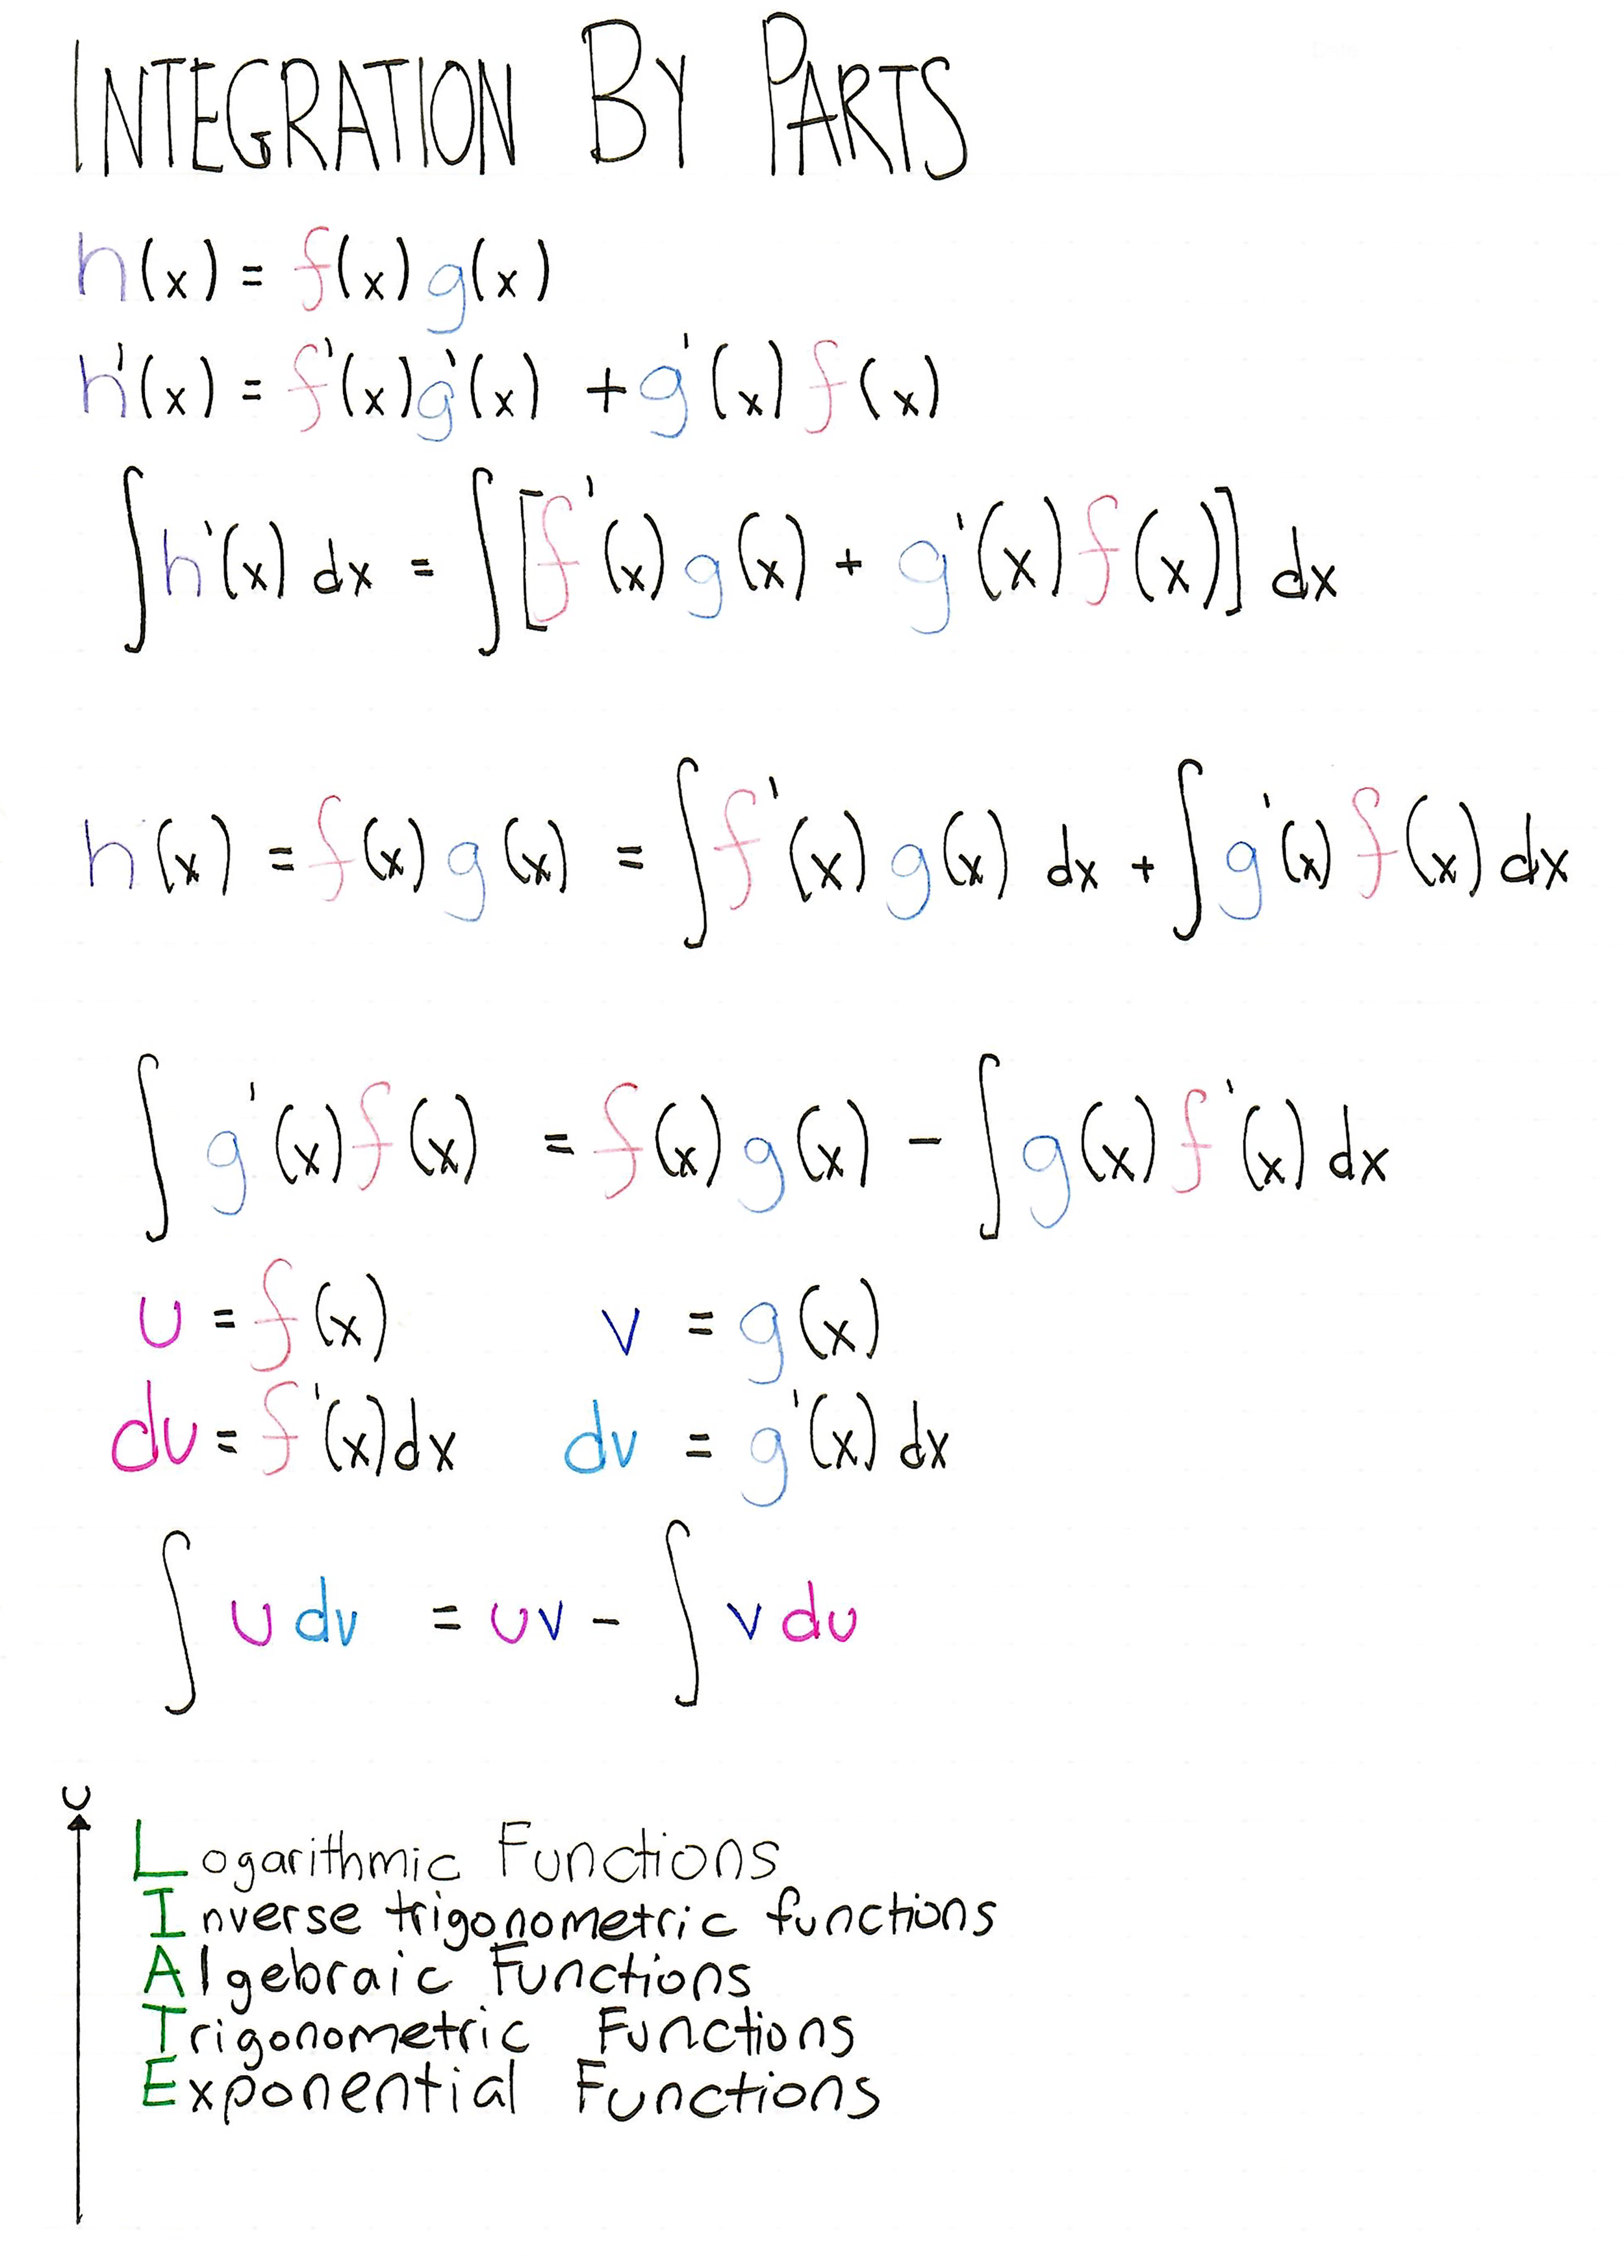 INTEGRATION BY PARTS
h(x) = f(x) g(x)
h'(x) = f'(x) g'(x) + g'(x) f(x)
∫ h'(x) dx = ∫ [f'(x) g(x) + g'(x) f(x)] dx
h(x) = f(x) g(x) = ∫ f'(x) g(x) dx + ∫ g'(x) f(x) dx
∫ g'(x) f(x) = f(x) g(x) - ∫ g(x) f'(x) dx
u = f(x) v = g(x)
du = f'(x) dx dv = g'(x) dx
∫ u dv = uv - ∫ v du
u
Logarithmic Functions
Inverse trigonometric functions
Algebraic Functions
Trigonometric Functions
Exponential Functions